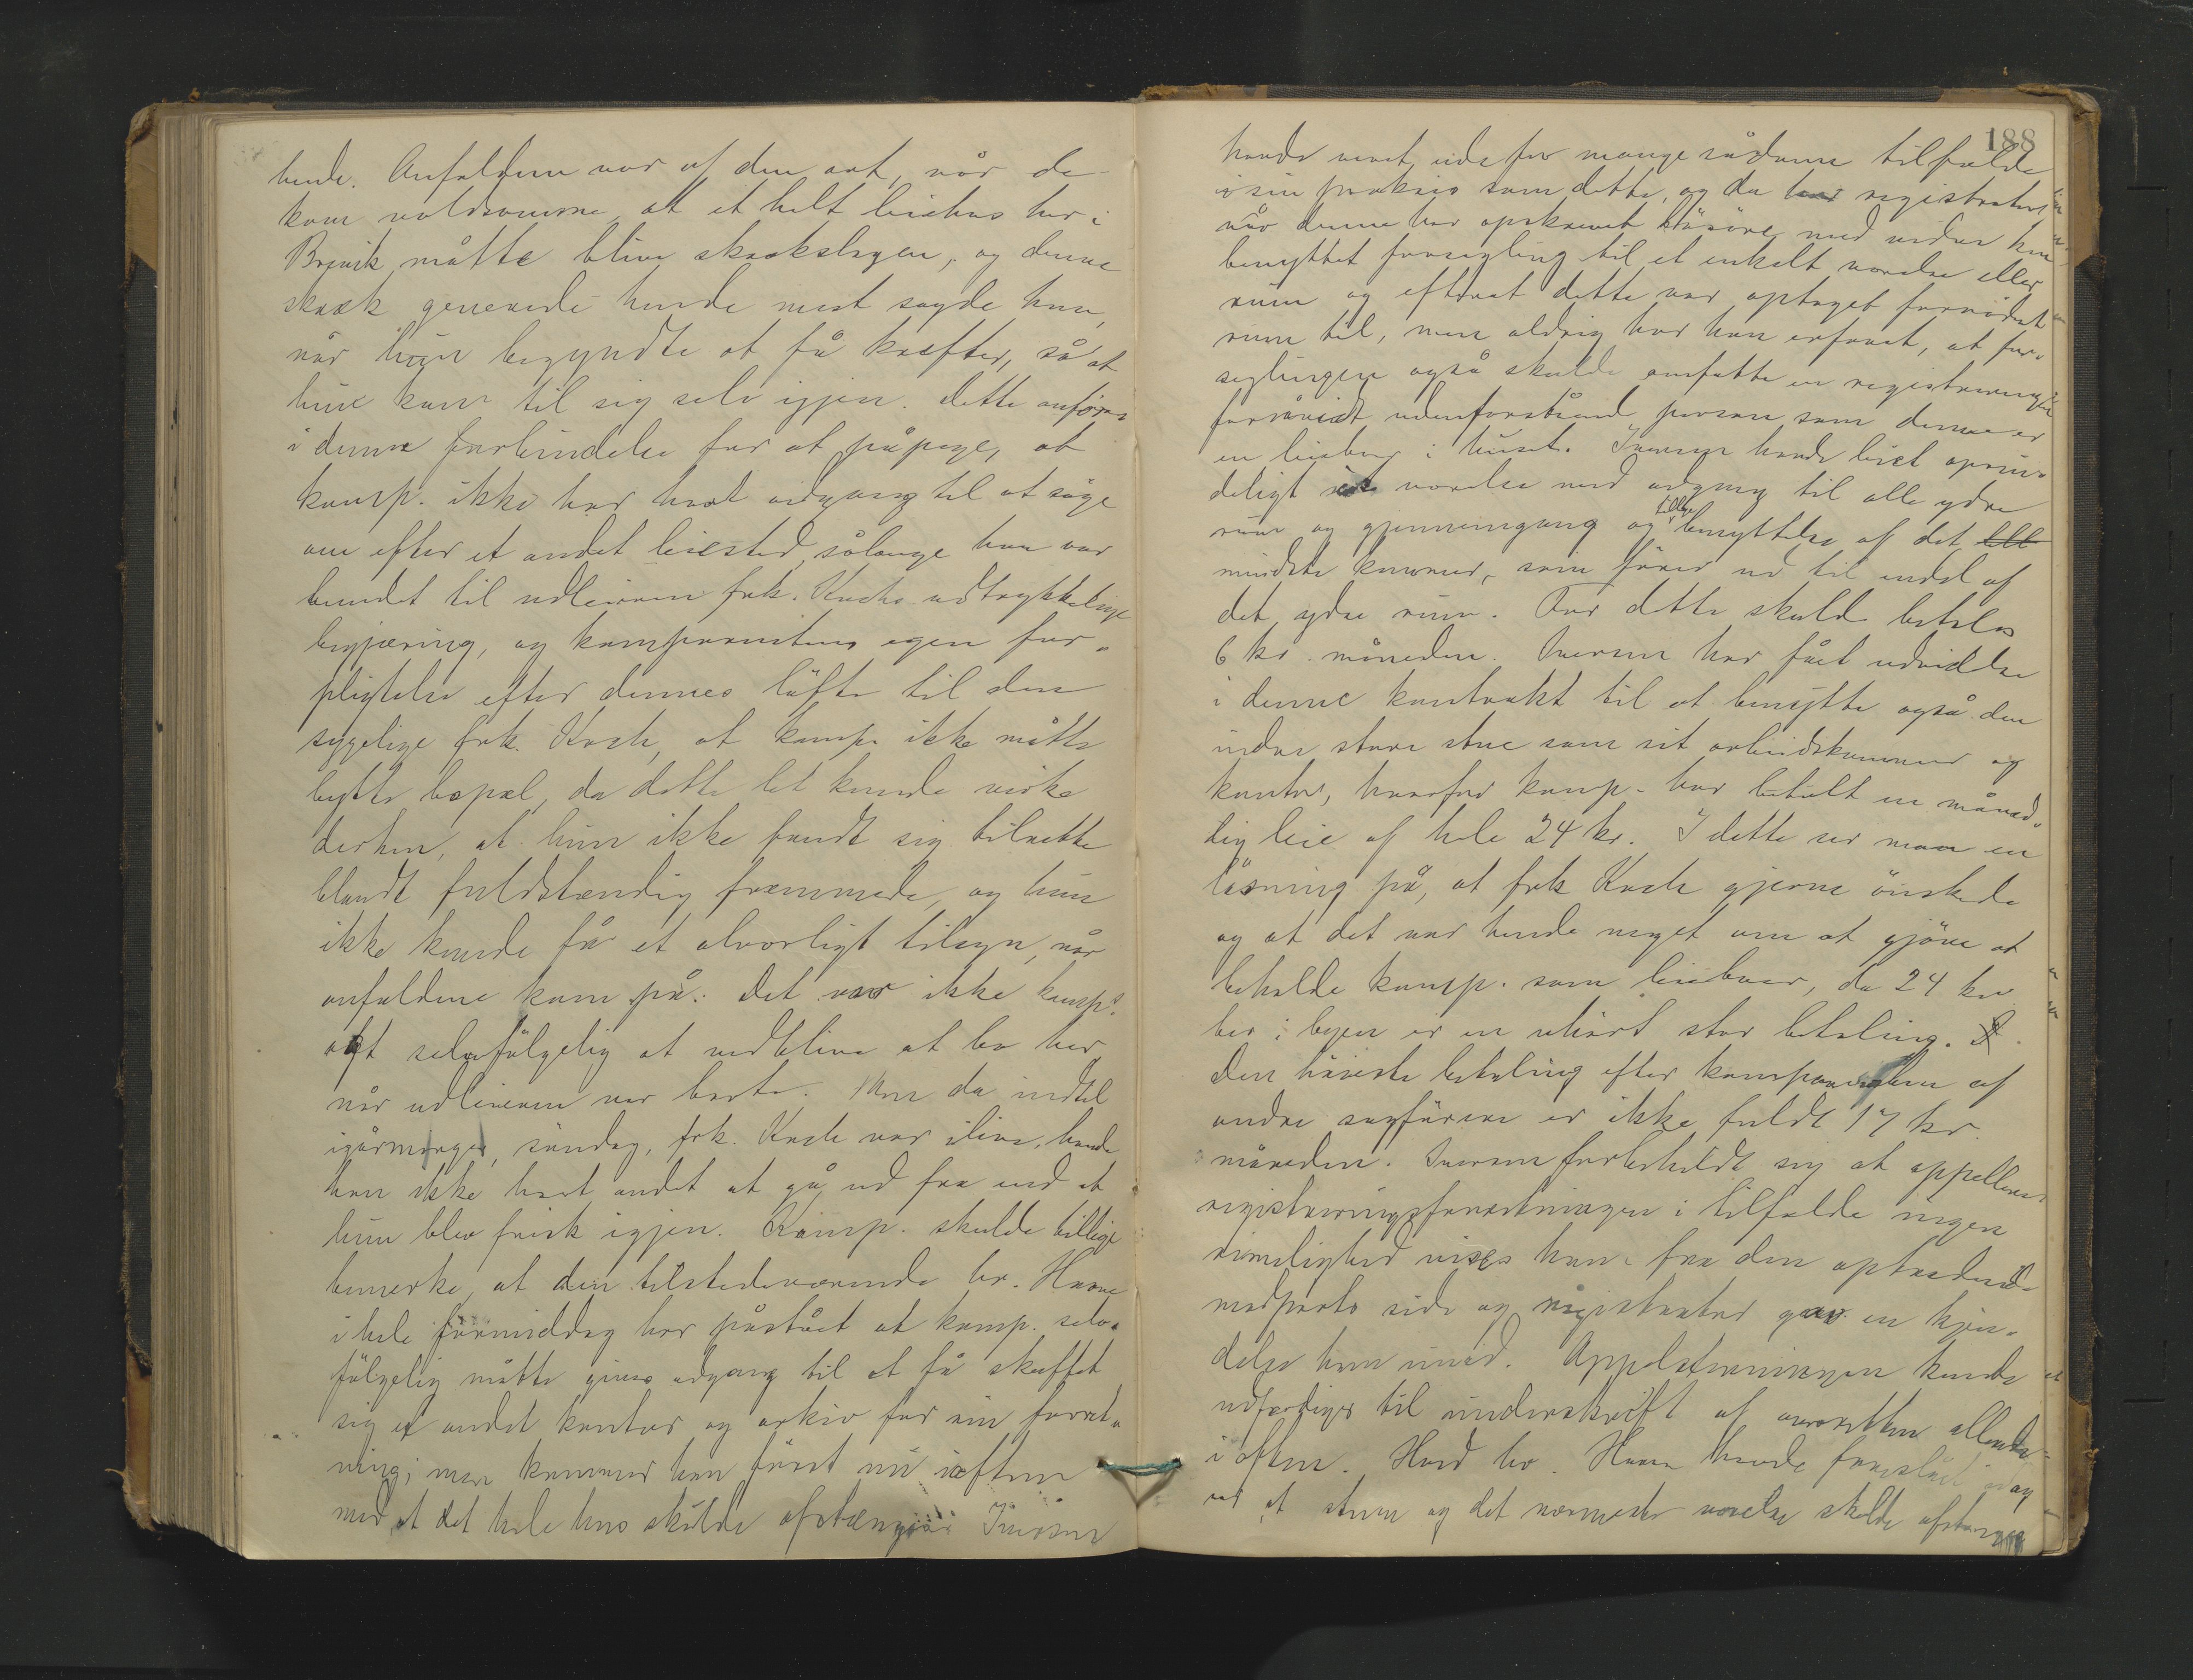 hende. Anfaldene var af den art, når de
kom voldsomme, at et helt leiehus her i
Brevik måtte blive skrækslagen, og denne
skræk generede hende mest sagde hun,
når hun begyndte at få kræfter, så at
hun kom til sig selv igjen. Dette anføres
i denne forbindelse for at påpege, at
komp. ikke har havt adgang til at søge
om efter et andet leiested, sålænge han var
bundet til udleieren frk. Kochs udtrykkelige
begjæring, og komparentens egen for-
pligtelse efter dennes løfte til den
sygelige frk. Koch, at komp. ikke måtte
bytte bopæl, da dette let kunde virke
derhen, at hun ikke fandt sig tilrette
blandt fuldstændig fremmede, og hun
ikke kunde få et alvorligt tilsyn, når
anfaldene kom på. Det var ikke komps.
agt selvfølgelig at vedblive at bo her,
når udleieren var borte. Men da indtil
igårmorges, søndag, frk. Koch var ilive, havde
han ikke havt andet at gå ud fra end at
hun blev frisk igjen. Komp. skulde tillige
bemerke, at den tilstedeværende hr.
i hele formiddag har påstået at komp. selv-
følgelig måtte gives adgang til at få skaffet
sig et andet kontor og arkiv for sin forret-
ning; men kommer han først nu iaften
med, at det hele hus skulde afstænges. Iversen
188
havde været ude for mange sådanne tilfælde
i sin praksis som dette, og da registrator,
når denne har opskrevet løsøre, med videre
benyttet forsegling til et enkelt værelse eller
rum og eftirat dette var optaget fornødent
rum til, men aldrig har han erfaret, at for-
seglingen også skulde omfatte en registreringen
forøvrigt udenforstående person som denne er
en leieboer i huset. Iversen havde leiet oprin-
deligt værelse med adgang til alle ydre
rum og gjennemgang og tillige benyttelse af det
mindste kammer, som fører ud til endel af
det ydre rum. For dette skulde betales
6 kr. måneden. Iversen har fået udvidelse
i denne kontrakt til at benytte også den
indre store stue som sit arbeidskammer og
kontor, hvorfor komp. har betalt en måned-
lig leie af hele 24 kr. I dette ser man en
løsning på, at frk Koch gjerne ønskede
og at det var hende meget om at gjøre at
beholde komp. som leieboer, da 24 kr
her i byen er en uhørt stor betaling.
Den høieste betaling efter komparenten af
andre sagførere er ikke fuldt 17 kr.
måneden. Iversen forbeholdt sig at appellere
registreringsforretningen i tilfælde ingen
rimelighed vises ham fra den optrædende
modparts side og registrator gav en kjen-
delse ham imod. Appelstevningen kunde
udfærdiges til underskrift af overretten allerede
i aften. Hvad hr. havde foreslået idag
var at stuen og det nærmeste værelse skulde afstænges